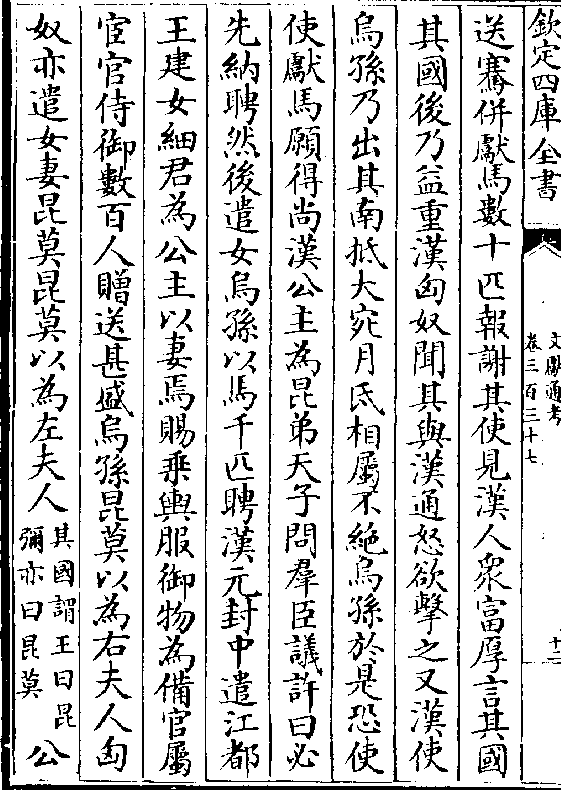 欽定四庫全書
文獻通考
卷三百三十七
十二
送騫併獻馬數十匹報謝其使見漢人衆富厚言其國
其國後乃益重漢匈奴聞其與漢通怒欲擊之又漢使
烏孫乃出其南抵大宛月氏相屬不絶烏孫於是恐使
使獻馬願得尚漢公主為昆弟天子問羣臣議許曰必
先納聘然後遣女烏孫以馬千匹聘漢元封中遣江都
王建女細君為公主以妻焉賜乗輿服御物為備官屬
宦官侍御數百人贈送甚盛烏孫昆莫以為右夫人匈
奴亦遣女妻昆莫昆莫以為左夫人其國謂王曰昆彌亦曰昆莫公